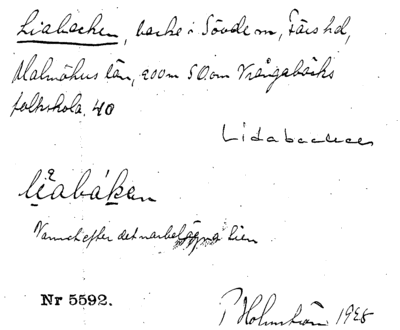 Liabacken, backe i Sövde sn, Färs hd,
Malmöhus län, 200 m SO om Vrångabäcks
folkskola. 40
Lidabacken
liabáken
Namnet efter det närbelägna Lien
Nr 5592.
P Holmström 1925